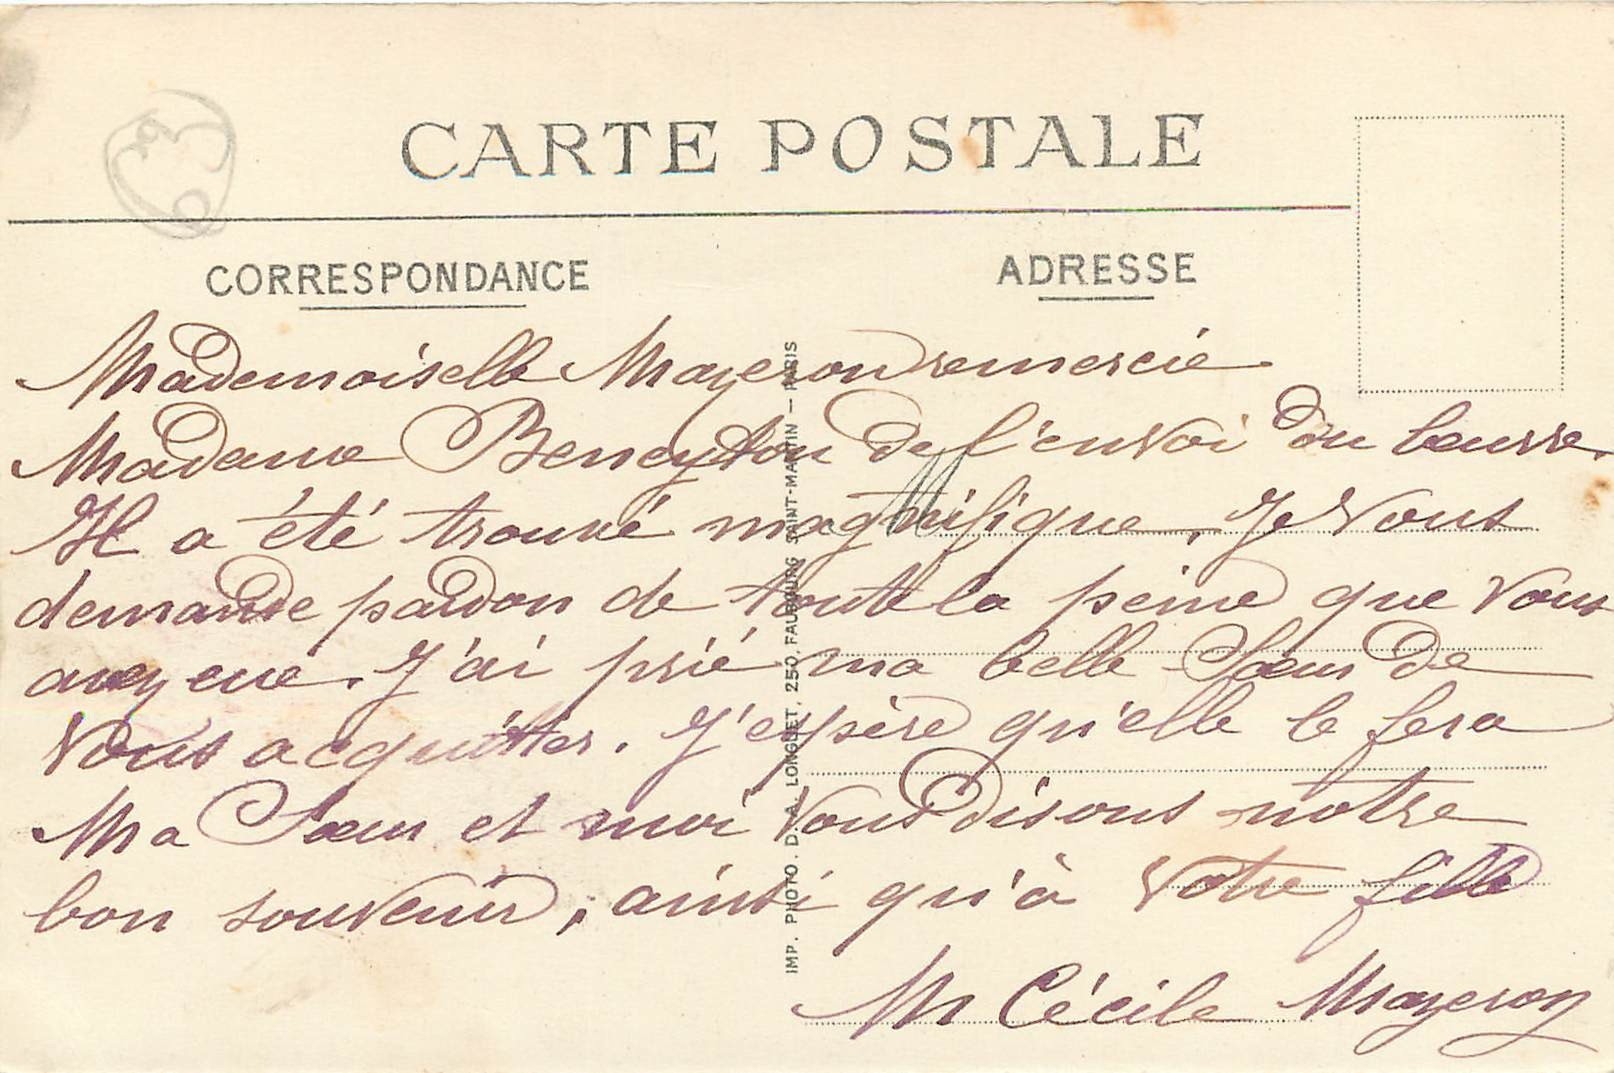 CARTE POSTALE
CORRESPONDANCE
ADRESSE
Mademoiselle Mazeron remercie
Madame Beneyton de l'envoi du beurre.
Il a été trouvé magnifique. Je Vous
demande pardon de toute la peine que Vous
avez eue. J'ai prié ma belle Sœur de
Vous acquitter. J'espère qu'elle le fera
Ma Sœur et moi Vous disons notre
bon souvenir, ainsi qu'à Votre fille
M Cécile Mazeron
IMP. PHOTO. D. A. LONGUET, 250, FAUBOURG SAINT-MARTIN — PARIS